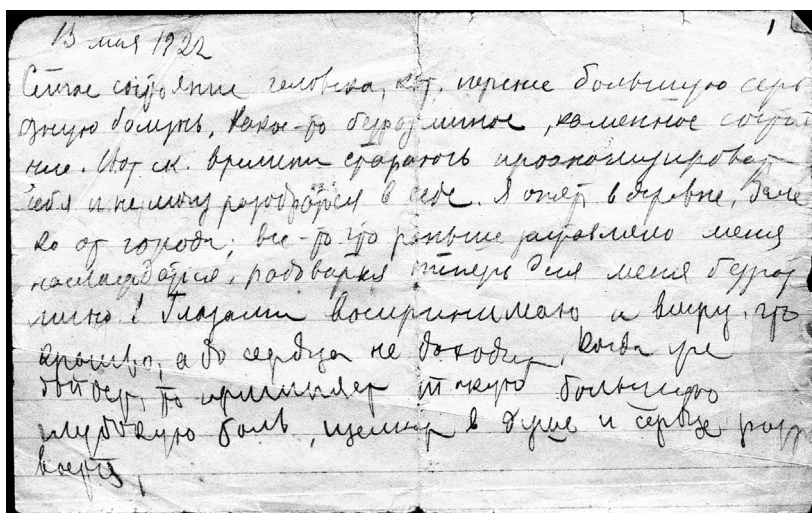 1
13 мая 1922
состояние человека, кот. перенес большую серь
зную болезнь. Какое-то безразличное, каменное состоя
ние. Вот ск. времени стараюсь проанализироват
себя и не могу разобраться в себе. Я опять в деревне, дале
ко от города; все-то что раньше заставляло меня
наслаждатся, радоватся теперь для меня безраз
лично! Глазами воспринимаю и вижу, что
красиво, а до сердца не доходит, когда же
то причиняет такую большую
глубокую боль, щемит в душе и сердце